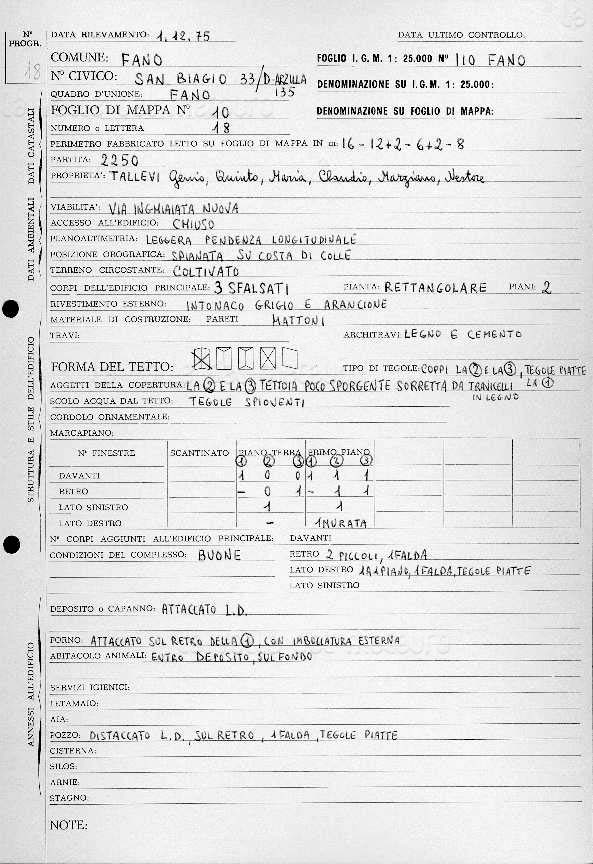 N° DATA RILEVAMENTO: 1.12.75 DATA ULTIMO CONTROLLO.
PROGR.
18
COMUNE: FANO FOGLIO I. G. M. 1: 25.000 N° 110 FANO
N° CIVICO: SAN BIAGIO 33/D-ARZILLA DENOMINAZIONE SU I.G.M. 1: 25.000:
135
QUADRO D'UNIONE: FANO
FOGLIO DI MAPPA N° 10 DENOMINAZIONE SU FOGLIO DI MAPPA:
NUMERO o LETTERA 18
PERIMETRO FABBRICATO LETTO SU FOGLIO DI MAPPA IN m: 16-12+2-6+2-8
PARTITA: 2250
PROPRIETA': TALLEVI Genio, Quinto, Maria, Claudio, Marziano, Nestore
DATI AMBIENTALI DATI CATASTALI
VIABILITA': VIA INGHIAIATA NUOVA
ACCESSO ALL'EDIFICIO: CHIUSO
PLANOALTIMETRIA: LEGGERA PENDENZA LONGITUDINALE
POSIZIONE OROGRAFICA: SPIANATA SU COSTA DI COLLE
TERRENO CIRCOSTANTE: COLTIVATO
CORPI DELL'EDIFICIO PRINCIPALE: 3 SFALSATI PIANTA: RETTANGOLARE PIANI: 2
RIVESTIMENTO ESTERNO: INTONACO GRIGIO E ARANCIONE
MATERIALE DI COSTRUZIONE: PARETI MATTONI
TRAVI: ARCHITRAVI: LEGNO E CEMENTO
FORMA DEL TETTO: TIPO DI TEGOLE: COPPI LA 2 E LA 3, TEGOLE PIATTE LA 1
AGGETTI DELLA COPERTURA: LA 2 E LA 3 TETTOIA POCO SPORGENTE SORRETTA DA TRAVICELLI
IN LEGNO
SCOLO ACQUA DAL TETTO: TEGOLE SPIOVENTI
CORDOLO ORNAMENTALE:
MARCAPIANO:
STRUTTURA E STILE DELL'EDIFICIO
N° FINESTRE SCANTINATO PIANO TERRA PRIMO PIANO
1 2 3 1 2 3
DAVANTI 1 0 0 1 1 1
RETRO - 0 1 - 1 1
LATO SINISTRO 1 1
LATO DESTRO - 1 MURATA
N° CORPI AGGIUNTI ALL'EDIFICIO PRINCIPALE: DAVANTI
CONDIZIONI DEL COMPLESSO: BUONE RETRO 2 PICCOLI, 1 FALDA
LATO DESTRO 1 A 1 PIANO, 1 FALDA, TEGOLE PIATTE
LATO SINISTRO
DEPOSITO o CAPANNO: ATTACCATO L.D.
FORNO: ATTACCATO SUL RETRO DELLA 1, CON IMBOCCATURA ESTERNA
ABITACOLO ANIMALI: ENTRO DEPOSITO, SUL FONDO
ANNESSI ALL'EDIFICIO
SERVIZI IGIENICI:
LETAMAIO:
AIA:
POZZO: DISTACCATO L.D., SUL RETRO, 1 FALDA, TEGOLE PIATTE
CISTERNA:
SILOS:
ARNIE:
STAGNO:
NOTE: